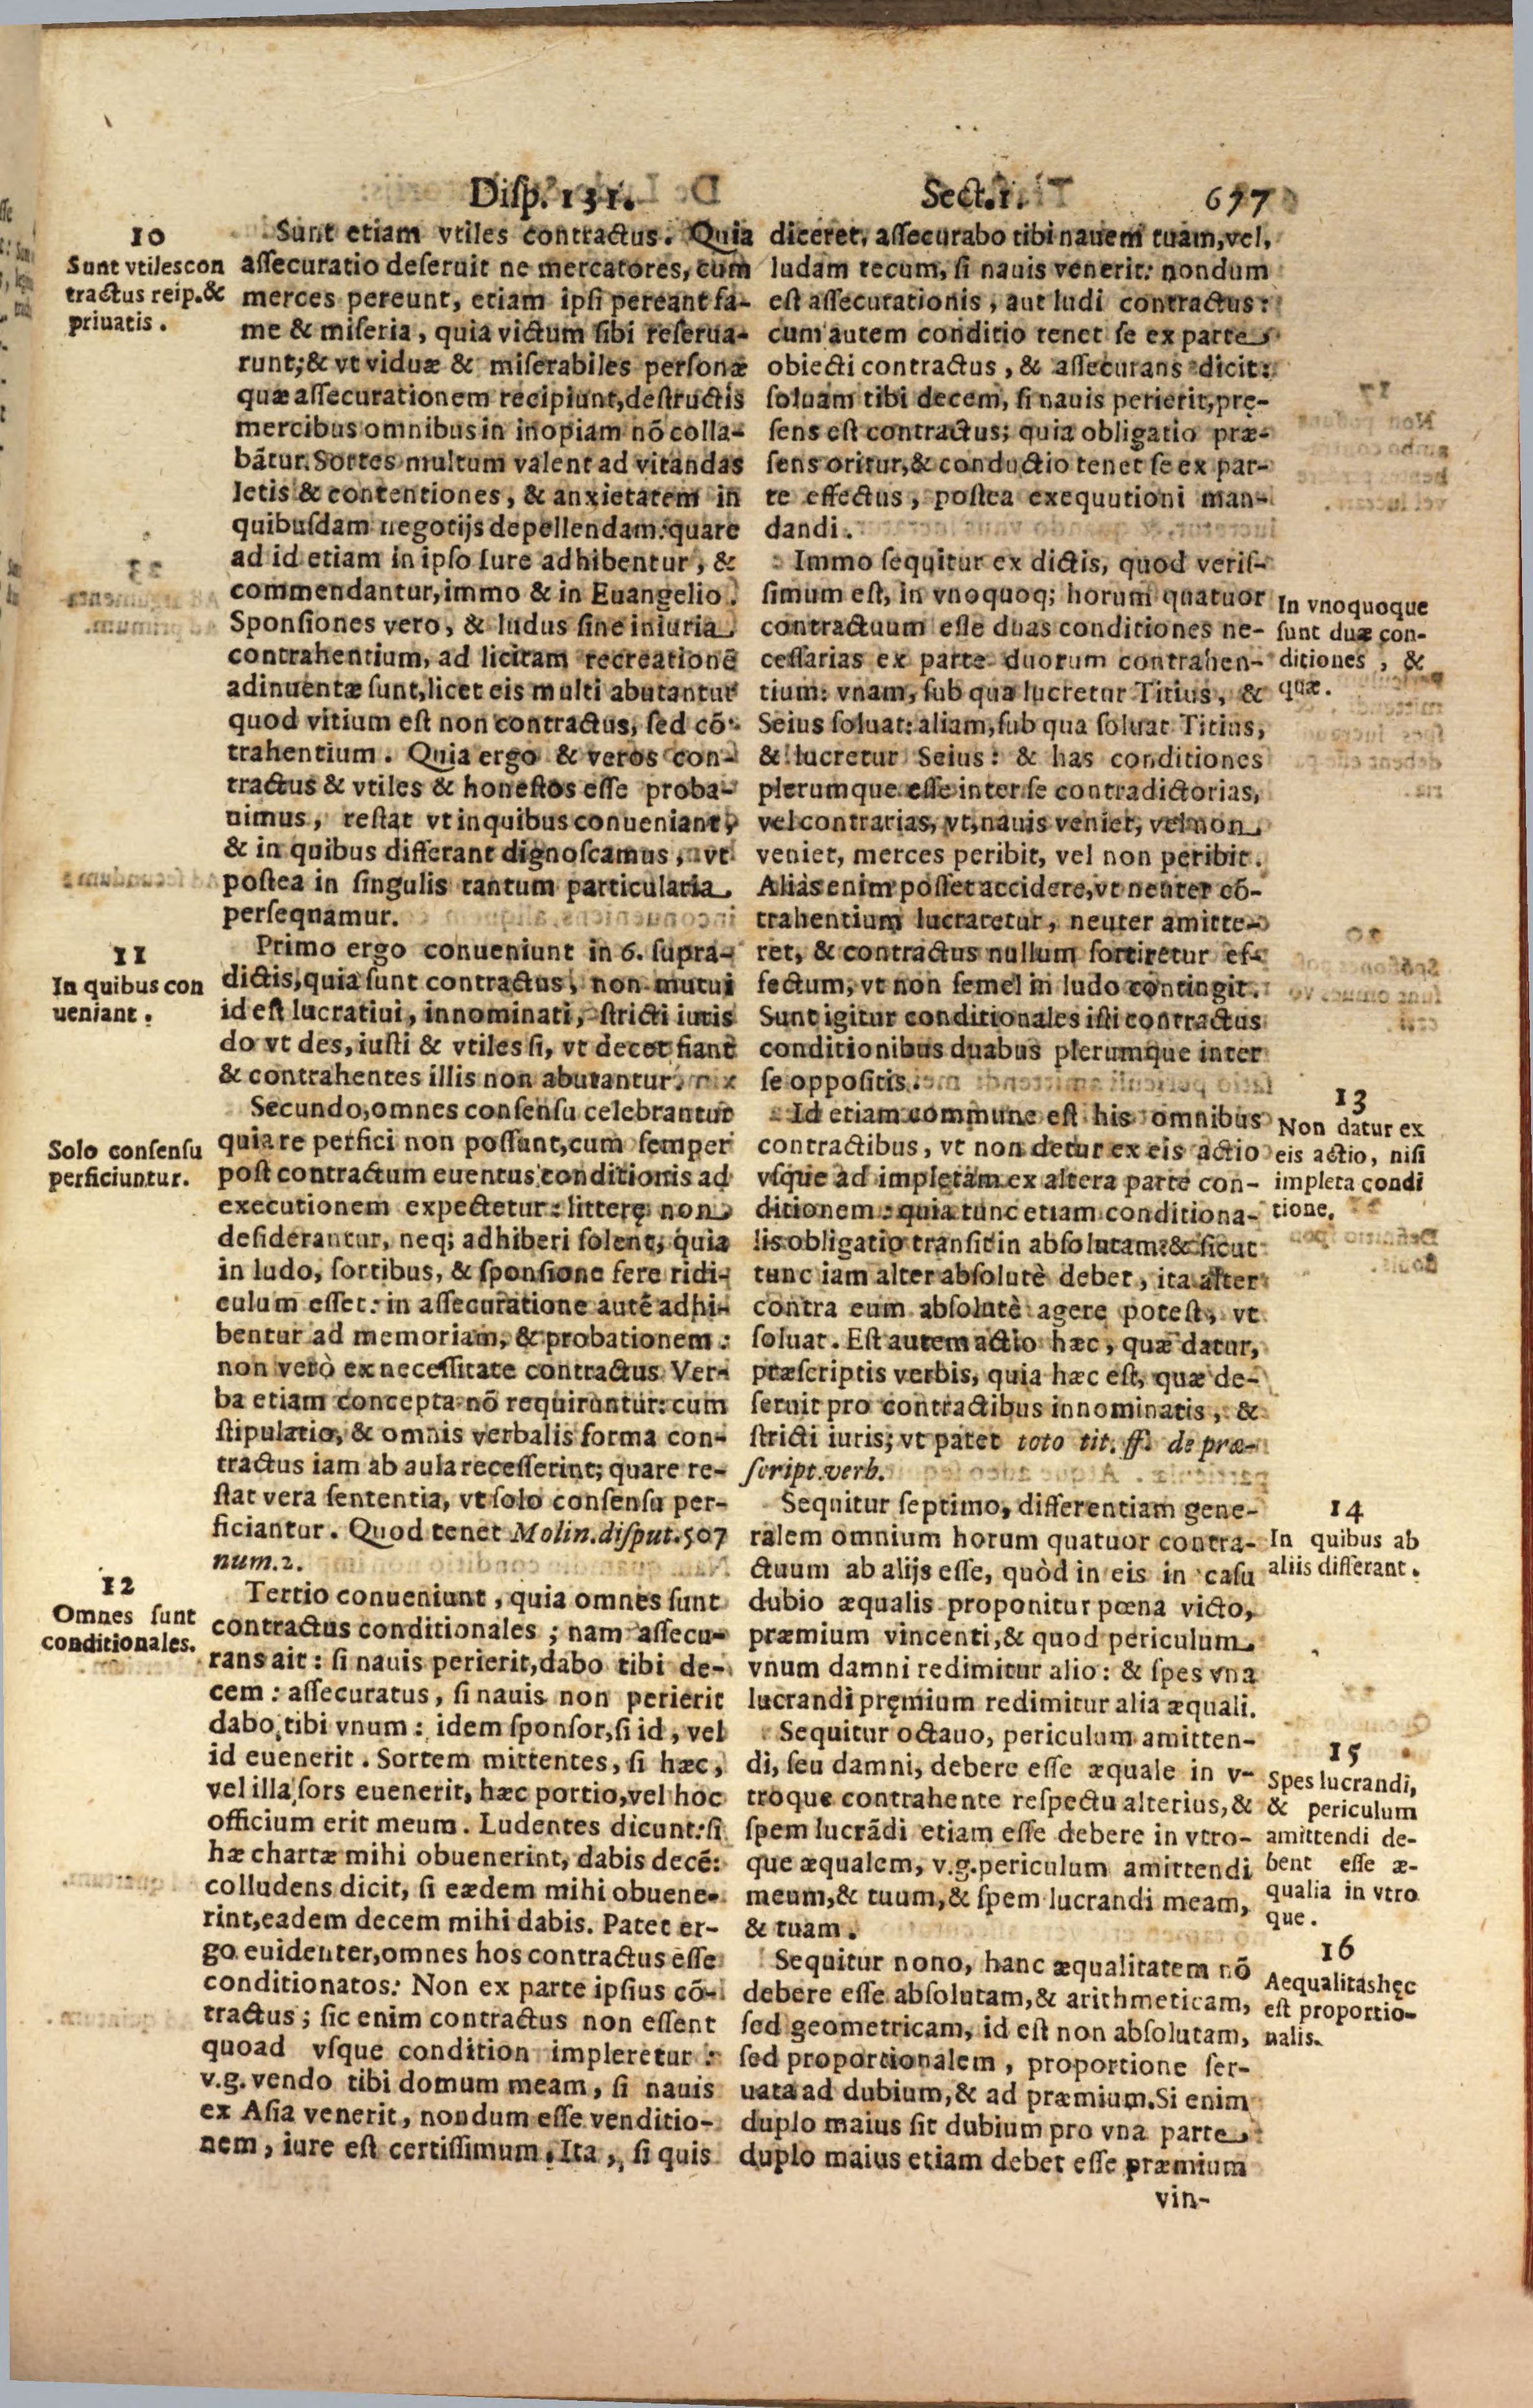 Disp. 131.
Sect. 1.
677
10
Sunt vtiles con
tractus reip. &
priuatis.
Sunt etiam vtiles contractus. Quia
assecuratio deseruit ne mercatores, cum
merces pereunt, etiam ipsi pereant fa-
me & miseria, quia victum sibi reserua-
runt; & vt viduæ & miserabiles personæ
quæ assecurationem recipiunt, destructis
mercibus omnibus in inopiam nō colla-
bātur. Sortes multum valent ad vitandas
letis & contentiones, & anxietatem in
quibusdam negotijs depellendam: quare
ad id etiam in ipso Iure adhibentur, &
commendantur, immo & in Euangelio.
Sponsiones vero, & ludus sine iniuria
contrahentium, ad licitam recreationē
adinuentæ sunt, licet eis multi abutantur
quod vitium est non contractus, sed cō-
trahentium. Quia ergo & veros con-
tractus & vtiles & honestos esse proba-
uimus, restat vt in quibus conueniant,
& in quibus differant dignoscamus, vt
postea in singulis tantum particularia
persequamur.
11
In quibus con
ueniant.
Primo ergo conueniunt in 6. supra-
dictis, quia sunt contractus, non mutui
id est lucratiui, innominati, stricti iuris
do vt des, iusti & vtiles si, vt decet fiant
& contrahentes illis non abutantur.
Solo consensu
perficiuntur.
Secundo, omnes consensu celebrantur
quia re perfici non possunt, cum semper
post contractum euentus conditionis ad
executionem expectetur: litteræ non
desiderantur, neq; adhiberi solent, quia
in ludo, sortibus, & sponsione fere ridi-
culum esset: in assecuratione autē adhi-
bentur ad memoriam, & probationem:
non verò ex necessitate contractus. Ver-
ba etiam concepta nō requiruntur: cum
stipulatio, & omnis verbalis forma con-
tractus iam ab aula recesserint; quare re-
stat vera sententia, vt solo consensu per-
ficiantur. Quod tenet Molin. disput. 507
num. 2.
12
Omnes sunt
conditionales.
Tertio conueniunt, quia omnes sunt
contractus conditionales; nam assecu-
rans ait: si nauis perierit, dabo tibi de-
cem: assecuratus, si nauis non perierit
dabo tibi vnum: idem sponsor, si id, vel
id euenerit. Sortem mittentes, si hæc,
vel illa sors euenerit, hæc portio, vel hoc
officium erit meum. Ludentes dicunt: si
hæ chartæ mihi obuenerint, dabis decē:
colludens dicit, si eædem mihi obuene-
rint, eadem decem mihi dabis. Patet er-
go euidenter, omnes hos contractus esse
conditionatos: Non ex parte ipsius cō-
tractus; sic enim contractus non essent
quoad vsque condition impleretur:
v.g. vendo tibi domum meam, si nauis
ex Asia venerit, nondum esse venditio-
nem, iure est certissimum. Ita, si quis
diceret, assecurabo tibi nauem tuam, vel,
ludam tecum, si nauis venerit: nondum
est assecurationis, aut ludi contractus:
cum autem conditio tenet se ex parte
obiecti contractus, & assecurans dicit:
soluam tibi decem, si nauis perierit, prę-
sens est contractus; quia obligatio præ-
sens oritur, & conductio tenet se ex par-
te effectus, postea exequutioni man-
dandi.
Immo sequitur ex dictis, quod veris-
simum est, in vnoquoq; horum quatuor
contractuum esse duas conditiones ne-
cessarias ex parte duorum contrahen-
tium: vnam, sub qua lucretur Titius, &
Seius soluat: aliam, sub qua soluat Titius,
& lucretur Seius: & has conditiones
plerumque esse inter se contradictorias,
vel contrarias, vt, nauis veniet, vel non
veniet, merces peribit, vel non peribit.
Aliàs enim posset accidere, vt neuter cō-
trahentium lucraretur, neuter amitte-
ret, & contractus nullum sortiretur ef-
fectum, vt non semel in ludo contingit.
Sunt igitur conditionales isti contractus
conditionibus duabus plerumque inter
se oppositis.
In vnoquoque
sunt duæ con-
ditiones, &
quæ.
Id etiam commune est his omnibus
contractibus, vt non detur ex eis actio
vsque ad impletam ex altera parte con-
ditionem: quia tunc etiam conditiona-
lis obligatio transit in absolutam: & sicut
tunc iam alter absolutè debet, ita alter
contra eum absolutè agere potest, vt
soluat. Est autem actio hæc, quæ datur,
præscriptis verbis, quia hæc est, quæ de-
seruit pro contractibus innominatis, &
stricti iuris; vt patet toto tit. ff. de præ-
script. verb.
13
Non datur ex
eis actio, nisi
impleta condi
tione.
Sequitur septimo, differentiam gene-
ralem omnium horum quatuor contra-
ctuum ab alijs esse, quòd in eis in casu
dubio æqualis proponitur pœna victo,
præmium vincenti, & quod periculum
vnum damni redimitur alio: & spes vna
lucrandi pręmium redimitur alia æquali.
14
In quibus ab
aliis differant.
Sequitur octauo, periculum amitten-
di, seu damni, debere esse æquale in v-
troque contrahente respectu alterius, &
spem lucrādi etiam esse debere in vtro-
que æqualem, v.g. periculum amittendi
meum, & tuum, & spem lucrandi meam,
& tuam.
15
Spes lucrandi,
& periculum
amittendi de-
bent esse æ-
qualia in vtro
que.
Sequitur nono, hanc æqualitatem nō
debere esse absolutam, & arithmeticam,
sed geometricam, id est non absolutam,
sed proportionalem, proportione ser-
uata ad dubium, & ad præmium. Si enim
duplo maius sit dubium pro vna parte,
duplo maius etiam debet esse præmium
16
Aequalitas hęc
est proportio-
nalis.
vin-